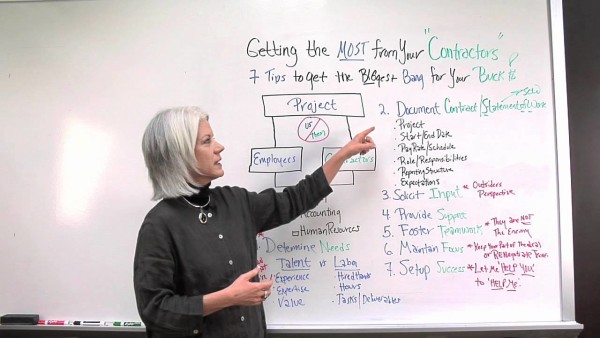 Getting the MOST from Your "Contractors"
7 Tips to get the BIGgest Bang for Your Buck
Project
Us
them
Employees
Contractors
Accounting
Human Resources
Determine Needs
Talent vs Labor
Experience
Expertise
Value
Hired Hands
Hours
Tasks/Deliverables
2. Document Contract/Statement of Work
SOW
· Project
· Start/End Date
· Pay Rate/Schedule
· Role/Responsibilities
· Reporting Structure
· Expectations
3. Solicit Input * Outsiders Perspective
4. Provide Support
5. Foster Teamwork * They are NOT The Enemy
6. Maintain Focus * Keep Your Part of the deal or RENegotiate Them
7. Setup Success * Let Me "HELP YOU" to "HELP ME"